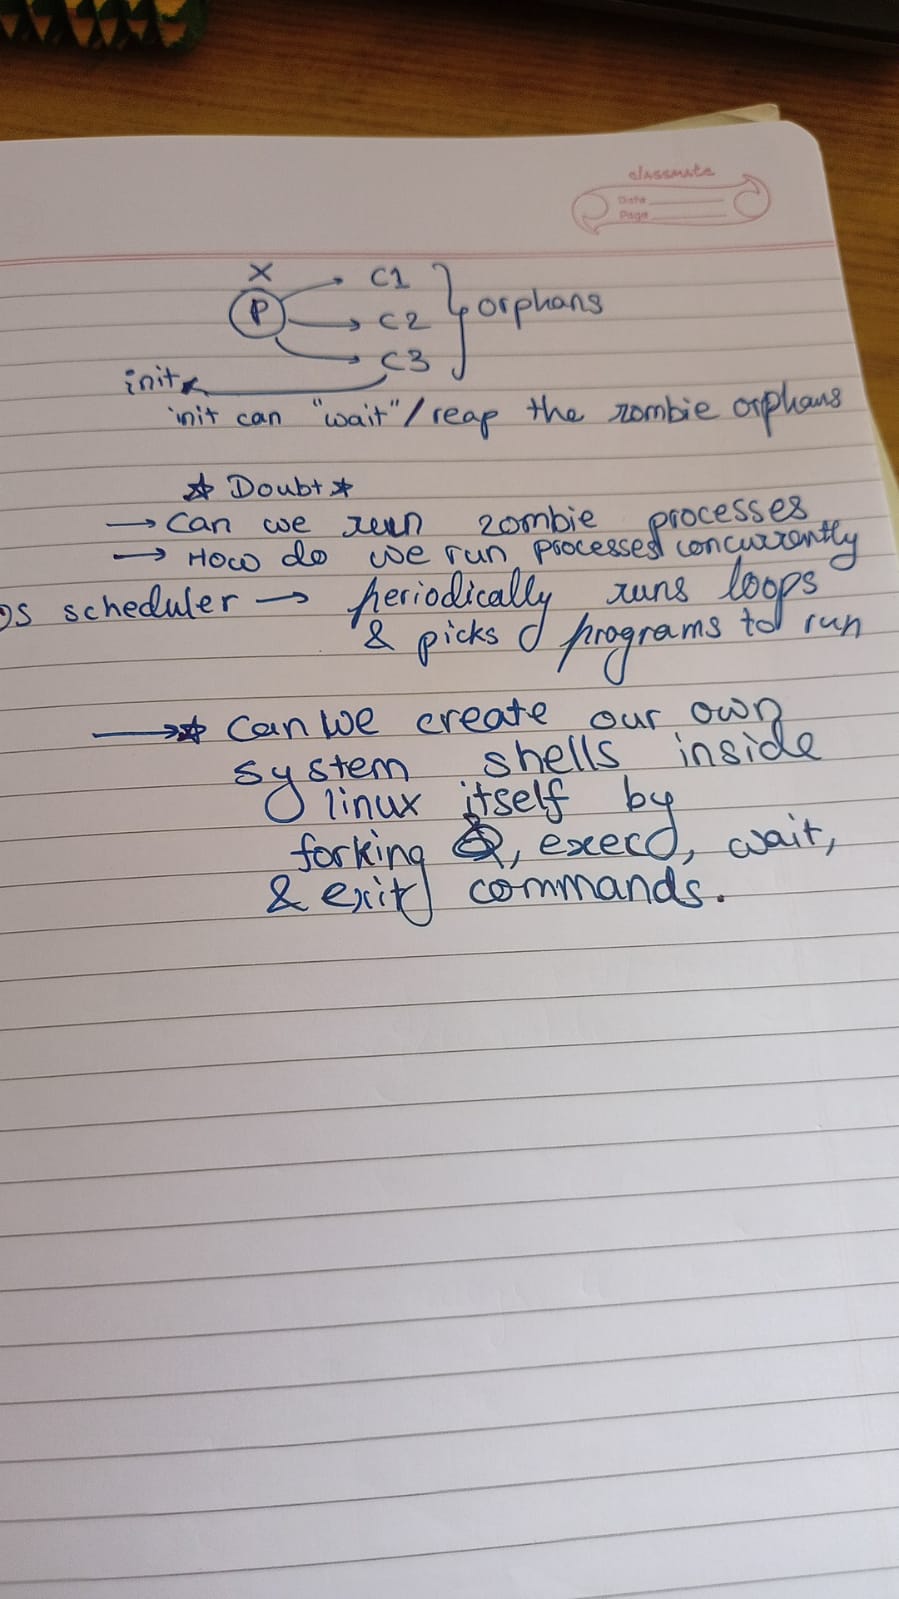 classmate
Date
Page
X
P
C1
C2
C3
orphans
init
init can "wait"/reap the zombie orphans
☆ Doubt ☆
→ Can we run zombie processes
→ How do we run processes concurrently
OS scheduler → periodically runs loops
& picks programs to run
→☆ Can we create our own
system shells inside
linux itself by
forking , exec(), wait,
& exit commands.